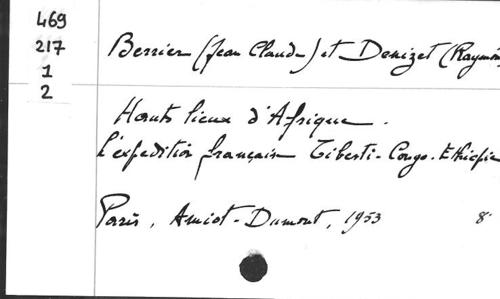 469
217
1
2
Berrier (Jean Claude) et Denizet (Raymon
Hauts lieux d'Afrique.
L'expedition française Tibesti-Congo-Ethiopie
Paris, Amiot-Dumont, 1953 8°